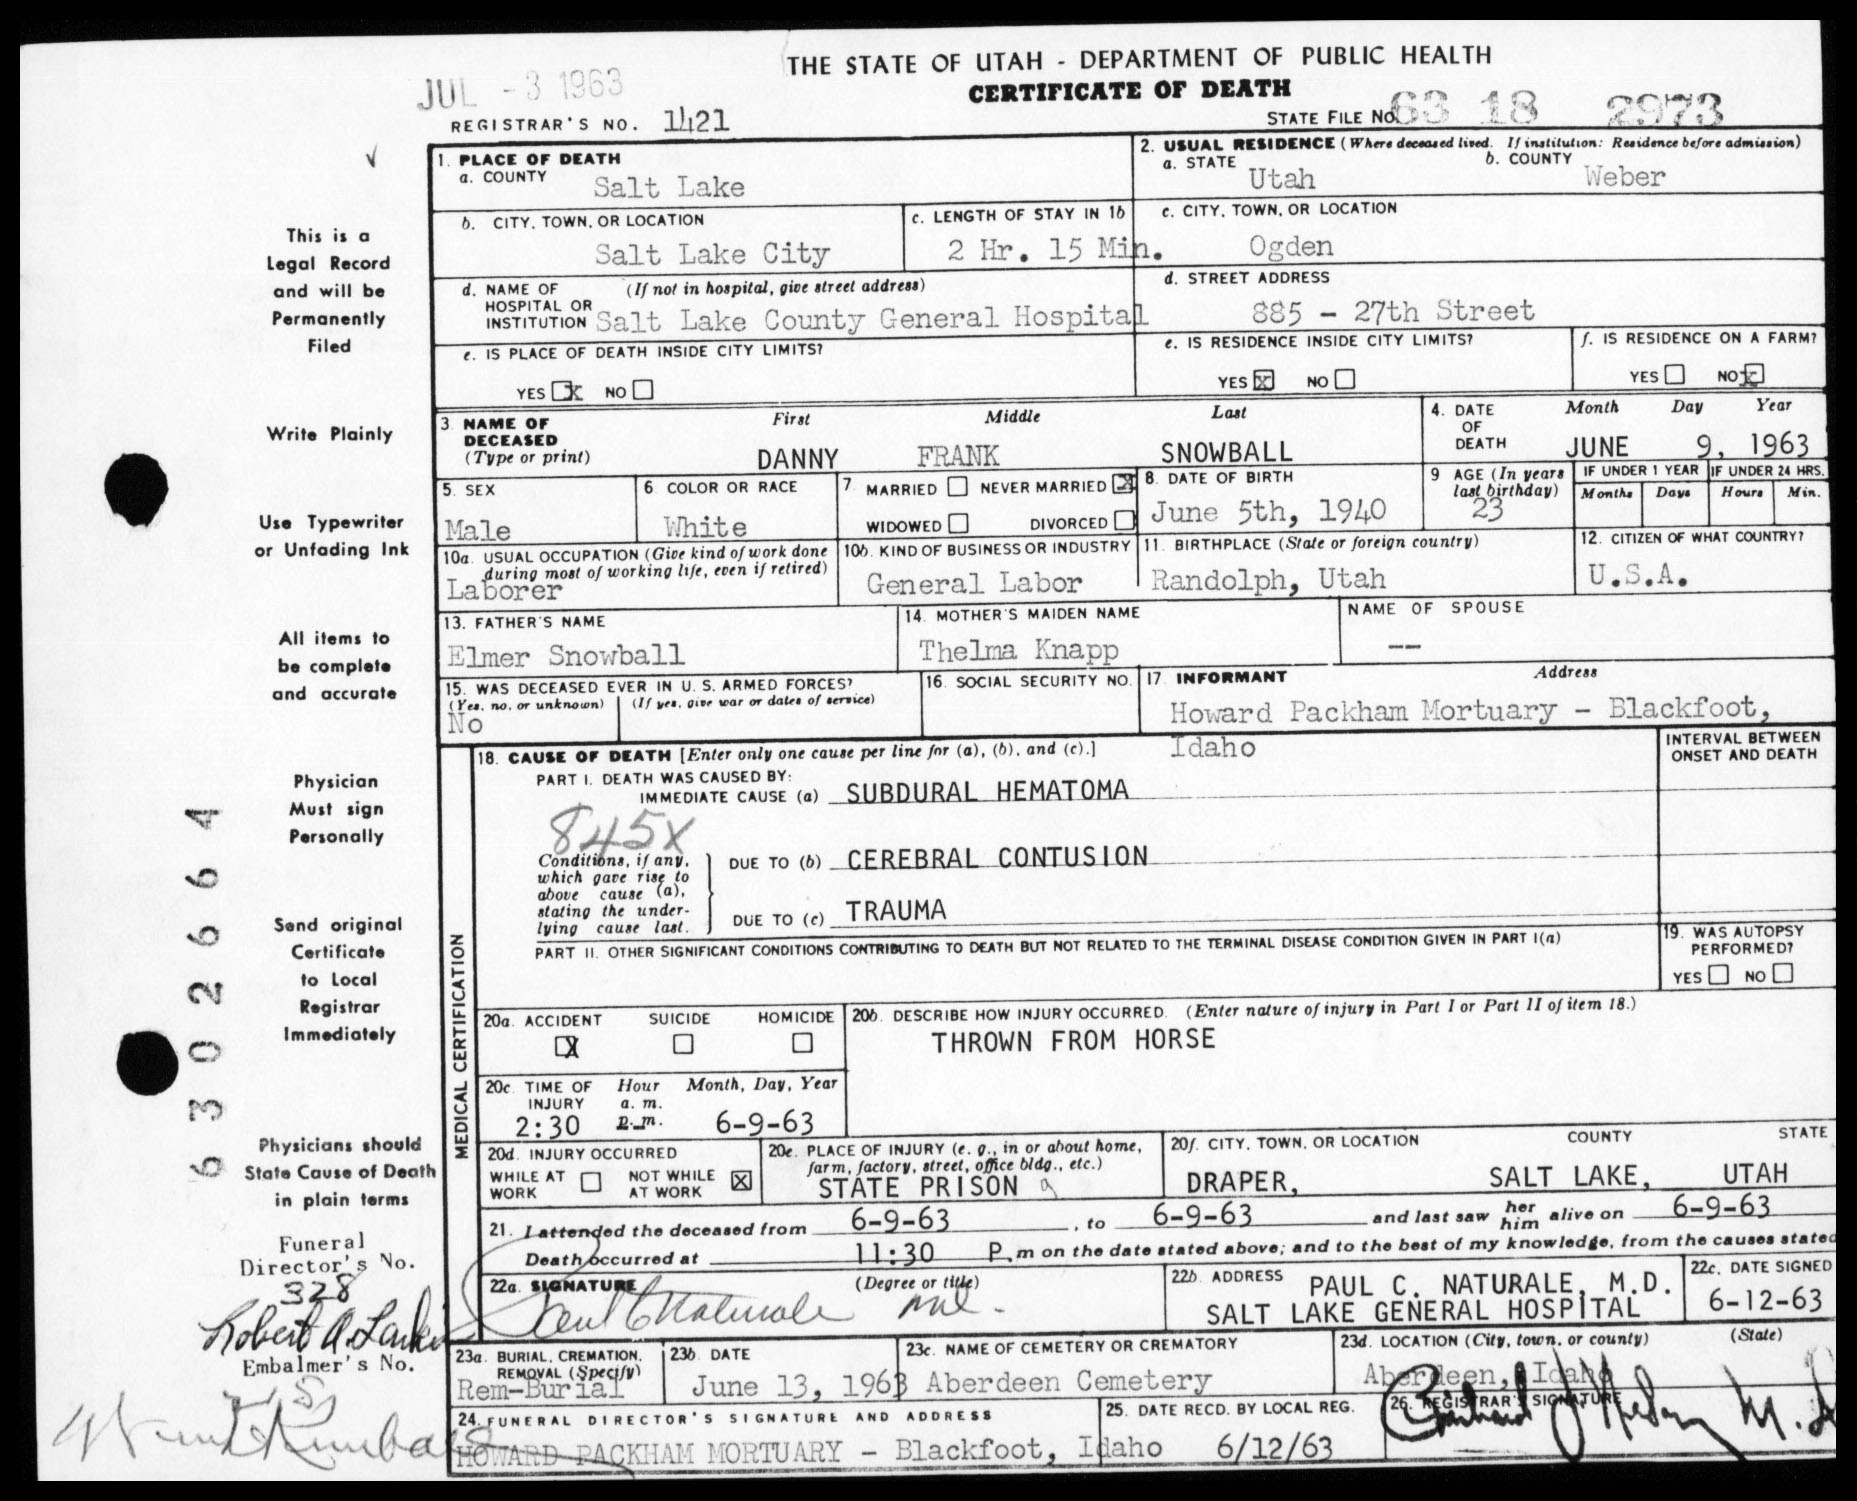 THE STATE OF UTAH - DEPARTMENT OF PUBLIC HEALTH
JUL - 3 1963
CERTIFICATE OF DEATH
REGISTRAR'S NO. 1421
STATE FILE NO. 63 18 2973
This is a
Legal Record
and will be
Permanently
Filed
Write Plainly
Use Typewriter
or Unfading Ink
All items to
be complete
and accurate
Physician
Must sign
Personally
Send original
Certificate
to Local
Registrar
Immediately
Physicians should
State Cause of Death
in plain terms
6302664
Funeral
Director's No.
328
Embalmer's No.
1. PLACE OF DEATH
a. COUNTY Salt Lake
2. USUAL RESIDENCE (Where deceased lived. If institution: Residence before admission)
a. STATE Utah b. COUNTY Weber
b. CITY, TOWN, OR LOCATION Salt Lake City
c. LENGTH OF STAY IN 1b 2 Hr. 15 Min.
c. CITY, TOWN, OR LOCATION Ogden
d. NAME OF HOSPITAL OR INSTITUTION (If not in hospital, give street address)
Salt Lake County General Hospital
d. STREET ADDRESS
885 - 27th Street
e. IS PLACE OF DEATH INSIDE CITY LIMITS?
YES X NO
e. IS RESIDENCE INSIDE CITY LIMITS?
YES X NO
f. IS RESIDENCE ON A FARM?
YES NO X
3. NAME OF DECEASED (Type or print)
First Middle Last
DANNY FRANK SNOWBALL
4. DATE OF DEATH Month Day Year
JUNE 9, 1963
5. SEX
Male
6. COLOR OR RACE
White
7. MARRIED NEVER MARRIED X
WIDOWED DIVORCED
8. DATE OF BIRTH
June 5th, 1940
9 AGE (In years last birthday)
23
IF UNDER 1 YEAR IF UNDER 24 HRS.
Months Days Hours Min.
10a. USUAL OCCUPATION (Give kind of work done during most of working life, even if retired)
Laborer
10b. KIND OF BUSINESS OR INDUSTRY
General Labor
11. BIRTHPLACE (State or foreign country)
Randolph, Utah
12. CITIZEN OF WHAT COUNTRY?
U.S.A.
13. FATHER'S NAME
Elmer Snowball
14. MOTHER'S MAIDEN NAME
Thelma Knapp
NAME OF SPOUSE
--
15. WAS DECEASED EVER IN U. S. ARMED FORCES?
(Yes, no, or unknown) (If yes, give war or dates of service)
No
16. SOCIAL SECURITY NO.
17. INFORMANT Address
Howard Packham Mortuary - Blackfoot,
Idaho
MEDICAL CERTIFICATION
18. CAUSE OF DEATH [Enter only one cause per line for (a), (b), and (c).]
INTERVAL BETWEEN ONSET AND DEATH
PART I. DEATH WAS CAUSED BY:
IMMEDIATE CAUSE (a) SUBDURAL HEMATOMA
845X
Conditions, if any, which gave rise to above cause (a), stating the underlying cause last.
DUE TO (b) CEREBRAL CONTUSION
DUE TO (c) TRAUMA
PART II. OTHER SIGNIFICANT CONDITIONS CONTRIBUTING TO DEATH BUT NOT RELATED TO THE TERMINAL DISEASE CONDITION GIVEN IN PART I(a)
19. WAS AUTOPSY PERFORMED?
YES NO
20a. ACCIDENT SUICIDE HOMICIDE
X
20b. DESCRIBE HOW INJURY OCCURRED. (Enter nature of injury in Part I or Part II of item 18.)
THROWN FROM HORSE
20c. TIME OF INJURY Hour Month, Day, Year
a. m.
2:30 p. m. 6-9-63
20d. INJURY OCCURRED
WHILE AT WORK NOT WHILE AT WORK X
20e. PLACE OF INJURY (e. g., in or about home, farm, factory, street, office bldg., etc.)
STATE PRISON
20f. CITY, TOWN, OR LOCATION COUNTY STATE
DRAPER, SALT LAKE, UTAH
21. I attended the deceased from 6-9-63, to 6-9-63 and last saw her him alive on 6-9-63
Death occurred at 11:30 P.m on the date stated above; and to the best of my knowledge, from the causes stated
22a. SIGNATURE (Degree or title)
Paul C Naturale M.D.
22b. ADDRESS PAUL C. NATURALE, M.D.
SALT LAKE GENERAL HOSPITAL
22c. DATE SIGNED
6-12-63
23a. BURIAL, CREMATION, REMOVAL (Specify)
Rem-Burial
23b. DATE
June 13, 1963
23c. NAME OF CEMETERY OR CREMATORY
Aberdeen Cemetery
23d. LOCATION (City, town, or county) (State)
Aberdeen, Idaho
24. FUNERAL DIRECTOR'S SIGNATURE AND ADDRESS
HOWARD PACKHAM MORTUARY - Blackfoot, Idaho
25. DATE RECD. BY LOCAL REG.
6/12/63
26. REGISTRAR'S SIGNATURE